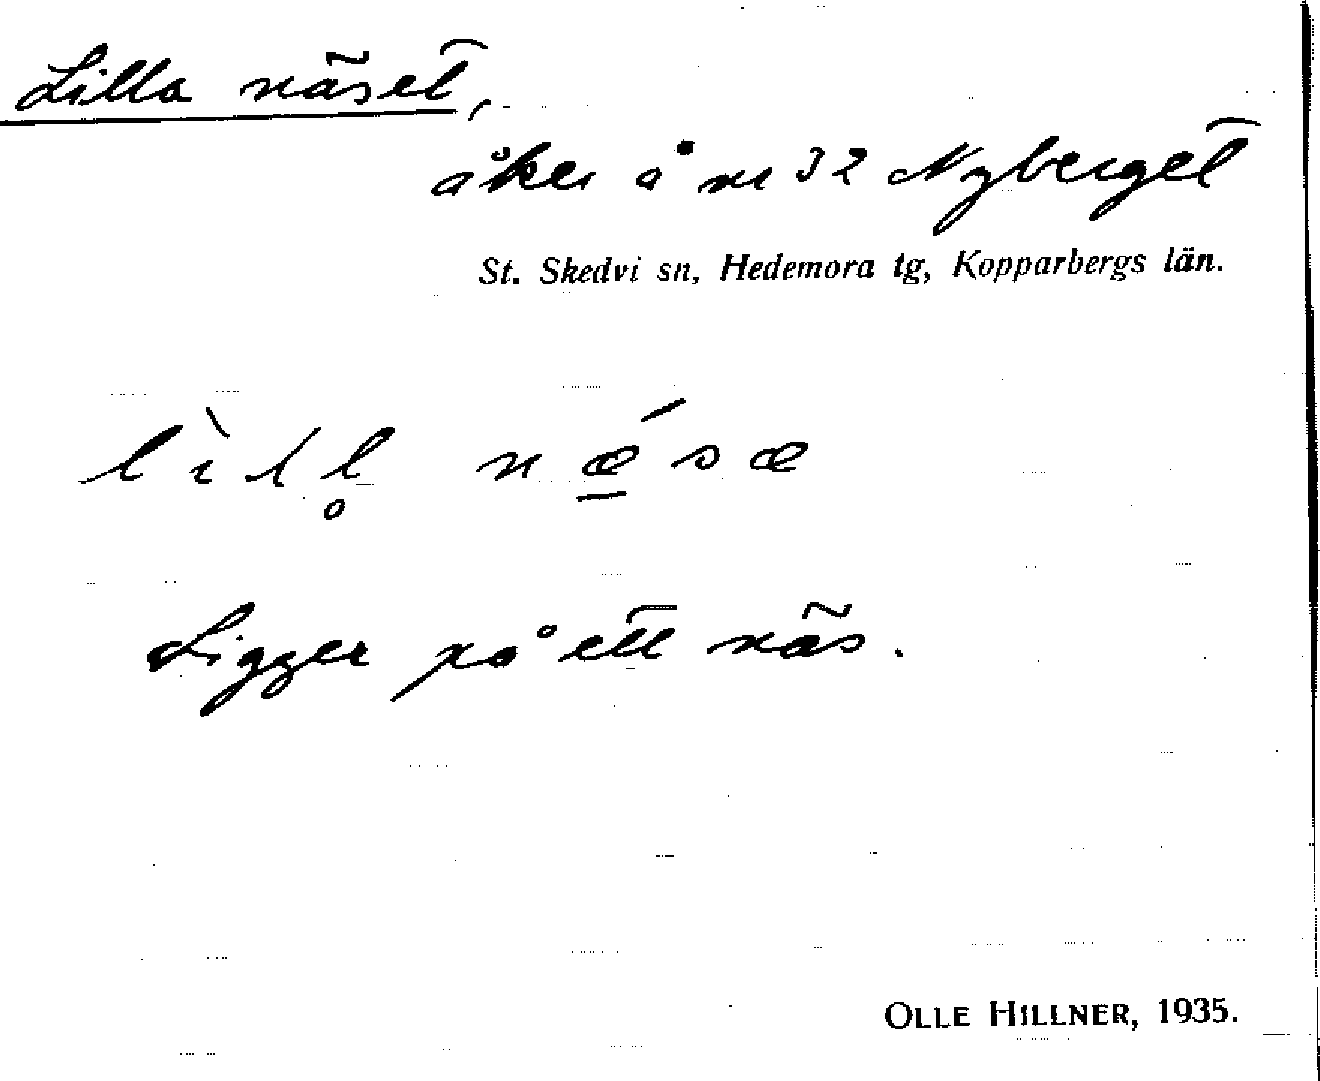 Lilla näset,
åker å nr 32 Nyberget
St. Skedvi sn, Hedemora tg, Kopparbergs län.
lìll̥ nǽ̱sæ
Ligger på ett näs.
OLLE HILLNER, 1935.